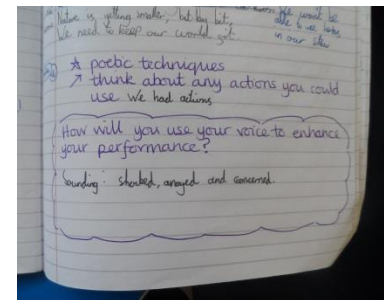 Nature is getting smaller, but bit by bit,
We need to keep our world
able to see
in our
☆ poetic techniques
↗ think about any actions you could
use We had actions
How will you use your voice to enhance
your performance?
Sounding: shocked, anoyed and concerned.